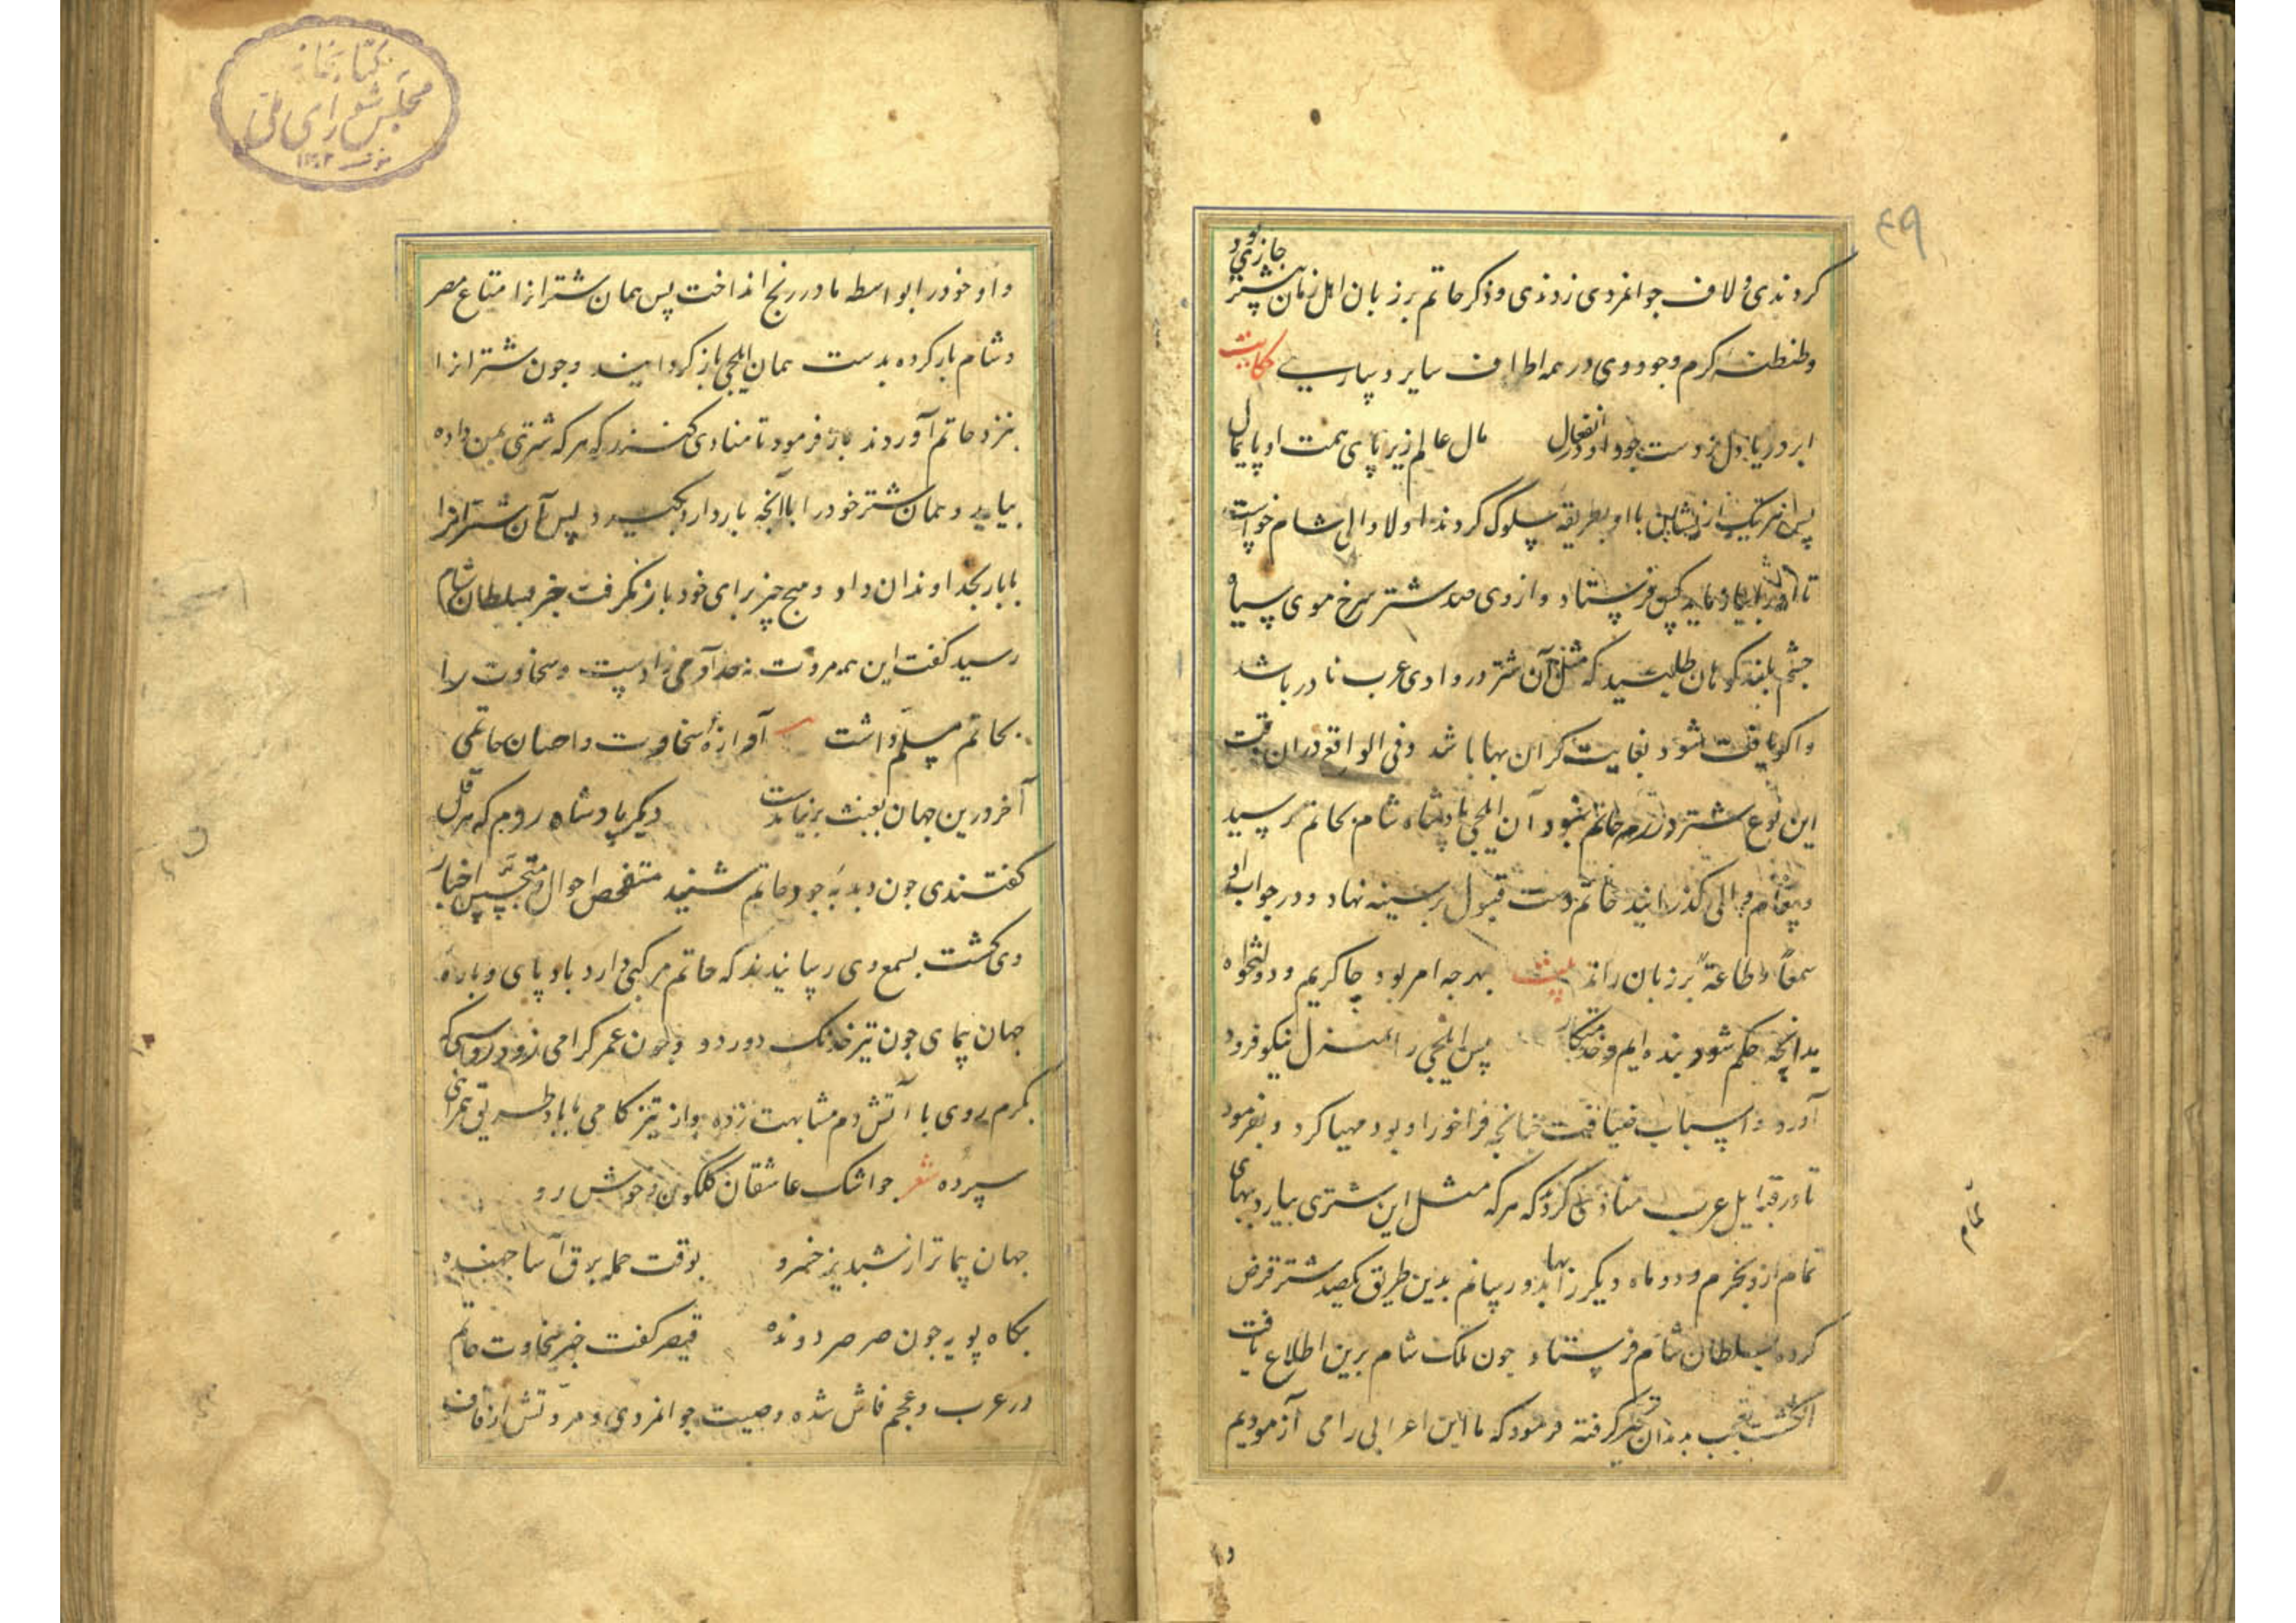 ٤٩
کردندی و لاف جوانمردی زدندی و ذکر حاتم بر زبان اهل زمان پیشتر جاری بود
و طنطنهٔ کرم وجود وی در همه اطراف سایر و ساری حکایت
ابر دریا دل ز دست جود او در انفعال مال عالم زیر پای همت او پایمال
پس هر یک از ایشان با او بطریقه سلوک کردند اولا والی شام خواست
تا او را کس فرستاد و از وی صد شتر سرخ موی سیاه
چشم بلند کوهان طلبید که مثل آن شتر در وادی عرب نادر باشد
و اکر یافت شود بغایت کران بها باشد و فی الواقع در آن وقت
این نوع شتر در رمه حاتم نبود آن ایلچی پادشاه شام بحاتم رسید
و پیغام والی کذرانید حاتم دست قبول بر سینه نهاد و در جواب او
سمعاً و طاعةً بر زبان راند بیت بهرجه امر بود جاکریم و دولتخواه
بدانچه حکم شود بنده ایم و خدمتکار پس ایلچی را بمنزل نیکو فرود
آورد و اسباب ضیافت جنانچه فراخور او بود مهیا کرد و بفرمود
تا در قبایل عرب منادی کردند که هر که مثل این شتری بیارد بهای
تمام ازو بخرم و دو ماه دیکر بها بدو رسانم بدین طریق یکصد شتر قرض
کرده بسلطان شام فرستاد جون ملک شام برین اطلاع یافت
انکشت تعجب بدندان تحیر کرفته فرمود که ما این اعرابی را می آزمودیم
تمام
و او
کتابخانه
مجلس شورای ملی
و او خود را بواسطه ما در رنج انداخت پس همان شترانرا متاع مصر
و شام بار کرده بدست همان ایلچی باز کردانیند و جون شترانرا
بنزد حاتم آوردند باز فرمود تا منادی کنند که هر که شتری بمن داده
بیاید و همان شتر خود را با آنچه بار دارد بکیرد پس آن شترانرا
با بار بخداوندان داد و هیچ چیز برای خود باز نکرفت خبر بسلطان شام
رسید کفت این همه مروت نه حد آدمی زادست و سخاوت را
بحاتم مسلم داشت آوازهٔ سخاوت و احسان حاتمی
آخر درین جهان بعبث بر نیامدست دیکر پادشاه روم که هرقل
کفتندی جون دبدبهٔ جود حاتم شنید متفحص احوال و متجسس اخبار
وی کشت بسمع وی رسانیدند که حاتم مرکبی دارد باد پای و بارهٔ
جهان پیمای جون تیر خدنک دور دو و جون عمر کرامی زود رو سبکی
بکرم روی با آتش دم مشابهت زده و از تیز کامی با باد طریق همرانی
سپرده شعر جو اشک عاشقان کلکون و خوش رو
جهان پیماتر از شبدیز خسرو بوقت حمله برق آسا جهنده
بکاه پویه جون صرصر دونده قیصر کفت خبر سخاوت حاتم
در عرب و عجم فاش شده و صیت جوانمردی و مروتش از قاف